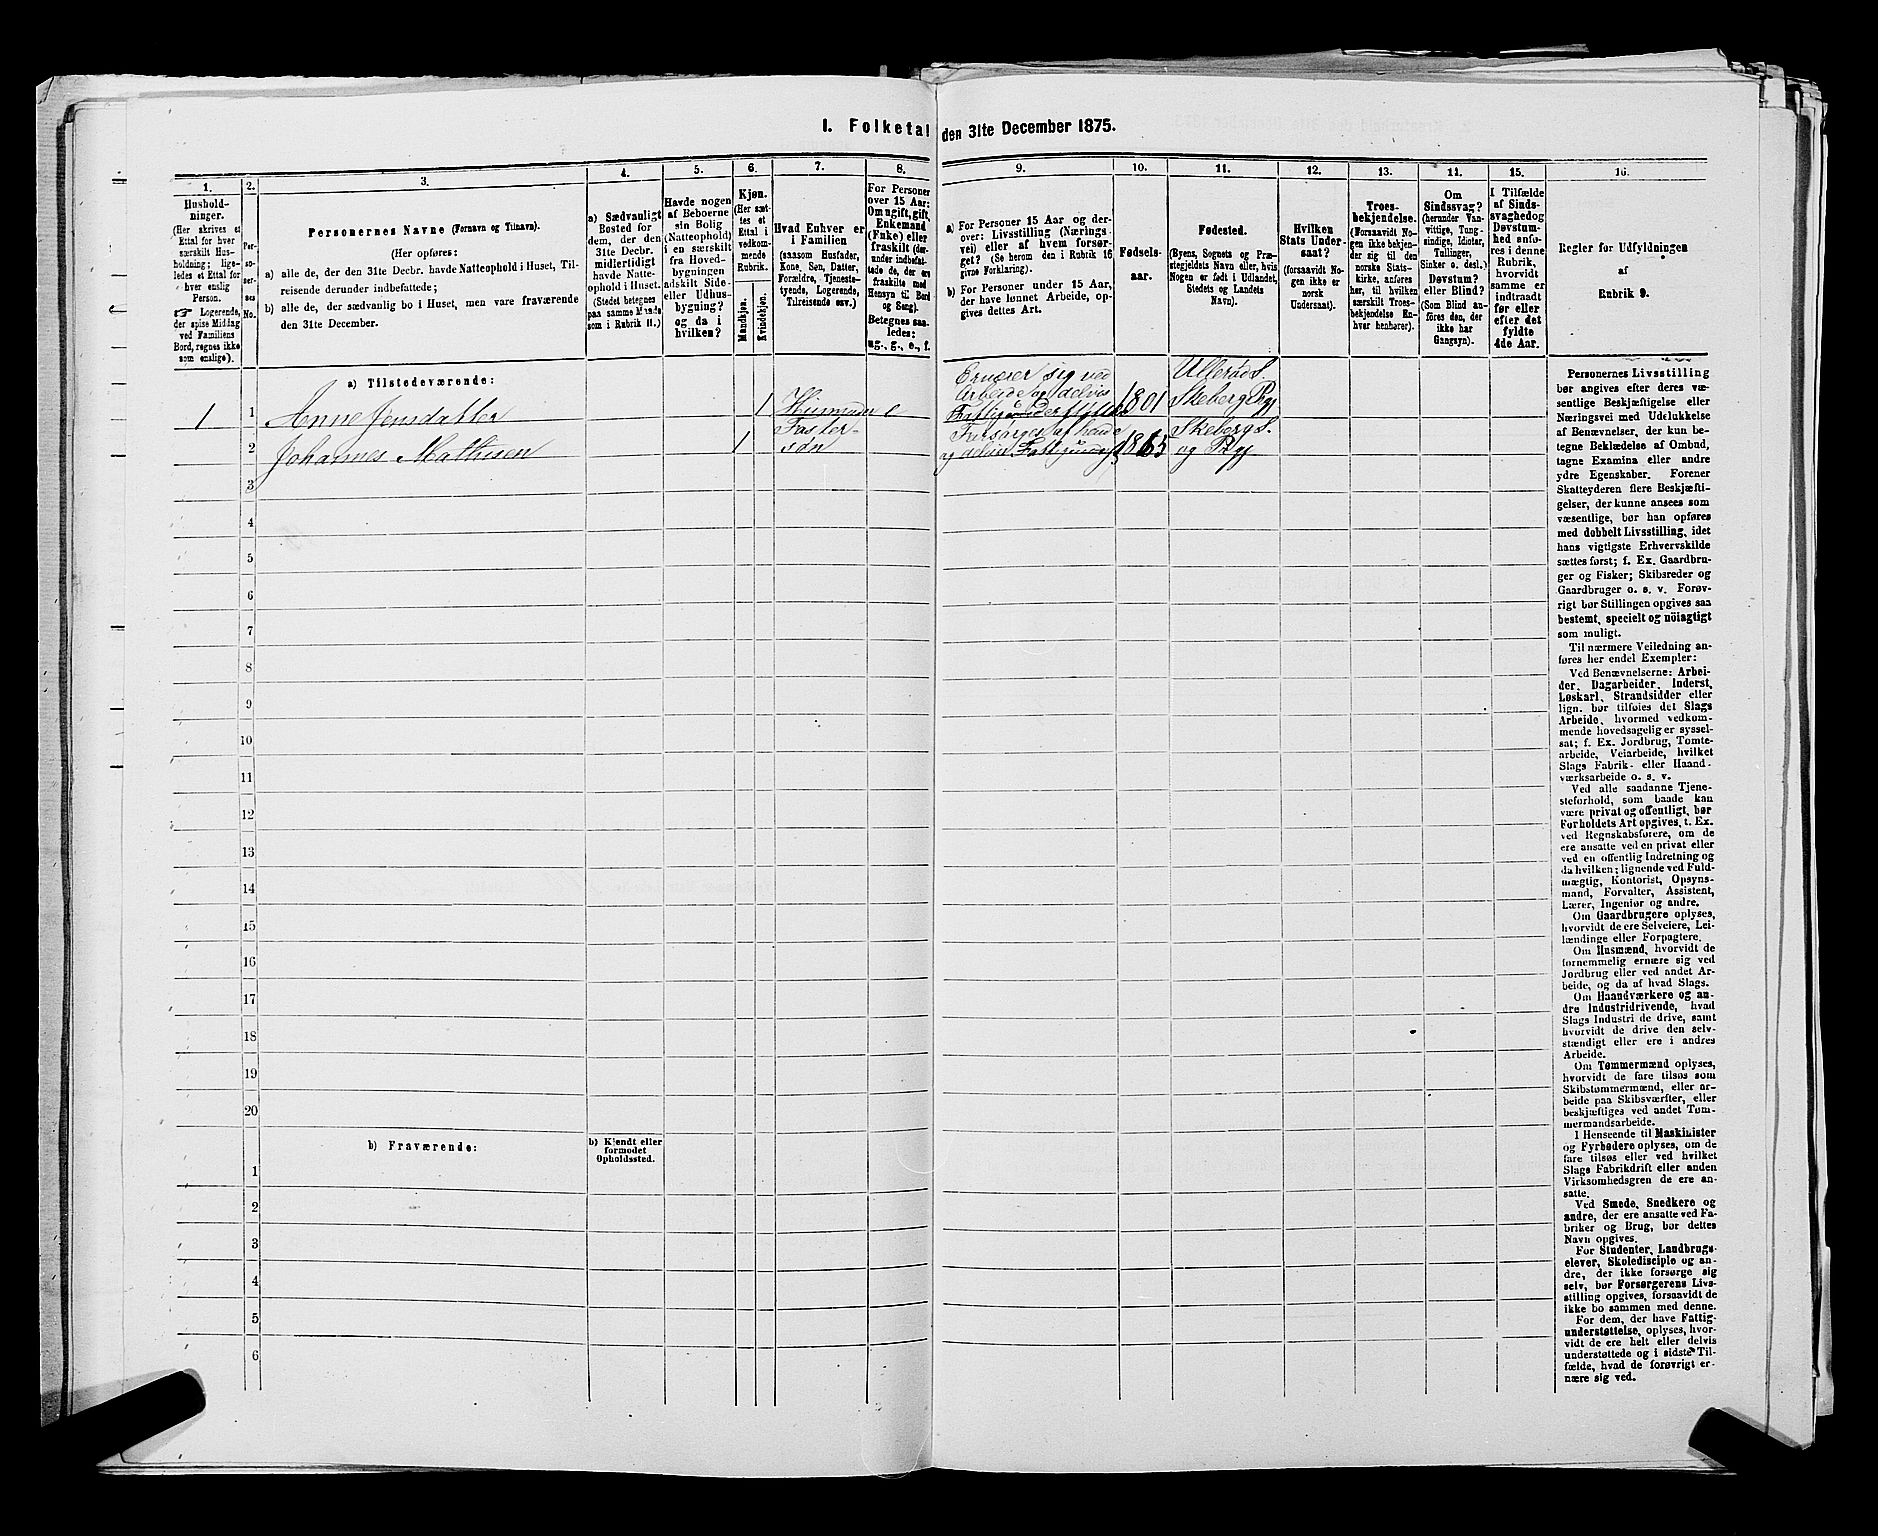 I. Folketal den 31te December 1875.
1.
Hushold-
ninger.
(Her skrives et
Ettal for hver
særskilt Hus-
holdning; lige-
ledes et Ettal for
hver enslig
Person.
☞ Logerende,
der spise Middag
ved Familiens
Bord, regnes ikke
som enslige).
2.
Per-
so-
ner-
nes
No.
3.
Personernes Navne (Fornavn og Tilnavn).
(Her opføres:
a) alle de, der den 31te Decbr. havde Natteophold i Huset, Til-
reisende derunder indbefattede;
b) alle de, der sædvanlig bo i Huset, men vare fraværende
den 31te December.
4.
a) Sædvanligt
Bosted for
dem, der den
31te Decbr.
midlertidigt
havde Natte-
ophold i Huset.
(Stedet betegnes
paa samme Maade
som i Rubrik 11.)
5.
Havde nogen
af Beboerne
sin Bolig
(Natteophold)
i en særskilt
fra Hoved-
bygningen
adskilt Side-
eller Udhus-
bygning?
og da i
hvilken?
6.
Kjøn.
(Her sæt-
tes et
Ettal i
vedkom-
mende
Rubrik.
Mandkjøn.
Kvindekjøn.
7.
Hvad Enhver er
i Familien
(saasom Husfader,
Kone, Søn, Datter,
Forældre, Tjeneste-
tyende, Logerende,
Tilreisende osv.)
8.
For Personer
over 15 Aar:
Om ugift, gift,
Enkemand
(Enke) eller
fraskilt (der-
under indbefat-
tede de, der ere
fraskilte med
Hensyn til Bord
og Seng).
Betegnes saa-
ledes:
ug., g., e., f.
9.
a) For Personer 15 Aar og der-
over: Livsstilling (Nærings-
vei) eller af hvem forsør-
get? (Se herom den i Rubrik 16
givne Forklaring).
b) For Personer under 15 Aar,
der have lønnet Arbeide, op-
gives dettes Art.
10.
Fødsels-
aar.
11.
Fødested.
(Byens, Sognets og Præ-
stegjeldets Navn eller, hvis
Nogen er født i Udlandet,
Stedets og Landets
Navn).
12.
Hvilken
Stats Under-
saat?
(forsaavidt No-
gen ikke er
norsk
Undersaat).
13.
Troes-
bekjendelse.
(Forsaavidt No-
gen ikke bekjen-
der sig til den
norske Stats-
kirke, anføres
her, til hvilken
særskilt Troes-
bekjendelse En-
hver henhører).
14.
Om
Sindssvag?
(herunder Van-
vittige, Tung-
sindige, Idioter,
Tullinger,
Sinker o. desl.)
Døvstum?
eller Blind?
(Som Blind an-
føres den, der
ikke har
Gangsyn).
15.
I Tilfælde
af Sinds-
svaghed og
Døvstum-
hed anfø-
res i denne
Rubrik,
hvorvidt
samme er
indtraadt
før eller
efter det
fyldte
4de Aar.
16.
Regler for Udfyldningen
af
Rubrik 9.
a) Tilstedeværende:
1 1 Anne Jensdatter 1 e Ernærer sig ved
Arbeide og delvis
1801 Ullerøds S.
Skeberg Pgj
2 Johannes Mathisen 1 Foster-
søn Forsørges af hende
og delvis 1865 Skeberg S.
og Pgj
3
4
5
6
7
8
9
10
11
12
13
14
15
16
17
18
19
20
b) Fraværende:
b) Kjendt eller
formodet
Opholdssted.
1
2
3
4
5
6
Personernes Livsstilling
bør angives efter deres væ-
sentlige Beskjæftigelse eller
Næringsvei med Udelukkelse
af Benævnelser, der kun be-
tegne Beklædelse af Ombud,
tagne Examina eller andre
ydre Egenskaber. Forener
Skatteyderen flere Beskjæfti-
gelser, der kunne ansees som
væsentlige, bør han opføres
med dobbelt Livsstilling, idet
hans vigtigste Erhvervskilde
sættes først; f. Ex. Gaardbru-
ger og Fisker; Skibsreder og
Gaardbruger o. s. v. Forøv-
rigt bør Stillingen opgives saa
bestemt, specielt og nöiagtigt
som muligt.
Til nærmere Veiledning an-
føres her endel Exempler:
Ved Benævnelserne: Arbei-
der, Dagarbeider, Inderst,
Løskarl, Strandsidder eller
lign. bør tilføies det Slags
Arbeide, hvormed vedkom-
mende hovedsagelig er syssel-
sat; f. Ex. Jordbrug, Tomte-
arbeide, Veiarbeide, hvilket
Slags Fabrik- eller Haand-
værksarbeide o. s. v.
Ved alle saadanne Tjene-
steforhold, som baade kan
være privat og offentligt, bør
Forholdets Art opgives, t. Ex.
ved Regnskabsførere, om de
ere ansatte ved en privat eller
ved en offentlig Indretning og
da hvilken; lignende ved Fuld-
mægtig, Kontorist, Opsyns-
mand, Forvalter, Assistent,
Lærer, Ingeniør og andre.
Om Gaardbrugere oplyses,
hvorvidt de ere Selveiere, Lei-
lændinge eller Forpagtere.
Om Husmænd, hvorvidt de
fornemmelig ernære sig ved
Jordbrug eller ved andet Ar-
beide, og da af hvad Slags.
Om Haandværkere og an-
dre Industridrivende, hvad
Slags Industri de drive, samt
hvorvidt de drive den selv-
stændigt eller ere i andres
Arbeide.
Om Tømmermænd oplyses,
hvorvidt de fare tilsøs som
Skibstømmermænd, eller ar-
beide paa Skibsværfter, eller
beskjæftiges ved andet Tøm-
mermandsarbeide.
I Henseende til Maskinister
og Fyrbødere oplyses, om de
fare tilsøs eller ved hvilket
Slags Fabrikdrift eller anden
Virksomhedsgren de ere an-
satte.
Ved Smede, Snedkere og
andre, der ere ansatte ved Fa-
briker og Brug, bør dettes
Navn opgives.
For Studenter, Landbrugs-
elever, Skoledisciple og an-
dre, der ikke forsørge sig
selv, bør Forsørgerens Livs-
stilling opgives, forsaavidt de
ikke bo sammen med denne.
For dem, der have Fattig-
understøttelse, oplyses, hvor-
vidt de ere helt eller delvis
understøttede og i sidste Til-
fælde, hvad de forøvrigt er-
nære sig ved.